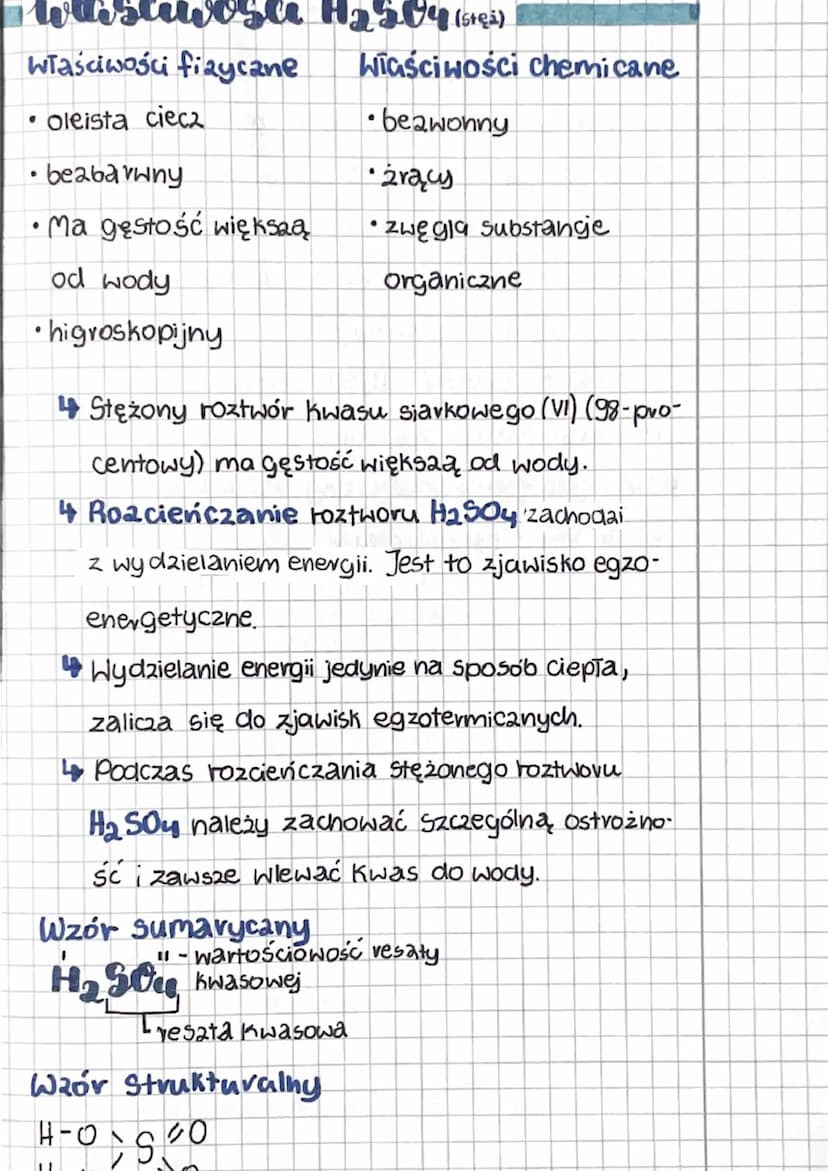 Właściwości H₂SO₄ (stęż)
Właściwości fizyczne
• oleista ciecz
• bezbarwny
• Ma gęstość większą
od wody
• higroskopijny
Właściwości chemiczne
• bezwonny
• żrący
• zwęgla substancje
organiczne
↳ Stężony roztwór kwasu siarkowego (VI) (98-pro-
centowy) ma gęstość większą od wody.
↳ Rozcieńczanie roztworu H₂SO₄ zachodzi
z wydzielaniem energii. Jest to zjawisko egzo-
energetyczne.
↳ Wydzielanie energii jedynie na sposób ciepła,
zalicza się do zjawisk egzotermicznych.
↳ Podczas rozcieńczania stężonego roztworu
H₂SO₄ należy zachować szczególną ostrożno-
ść i zawsze wlewać kwas do wody.
Wzór sumaryczny
I II - wartościowość reszty
H₂SO₄ kwasowej
reszta kwasowa
Wzór strukturalny
H-O \ S // O